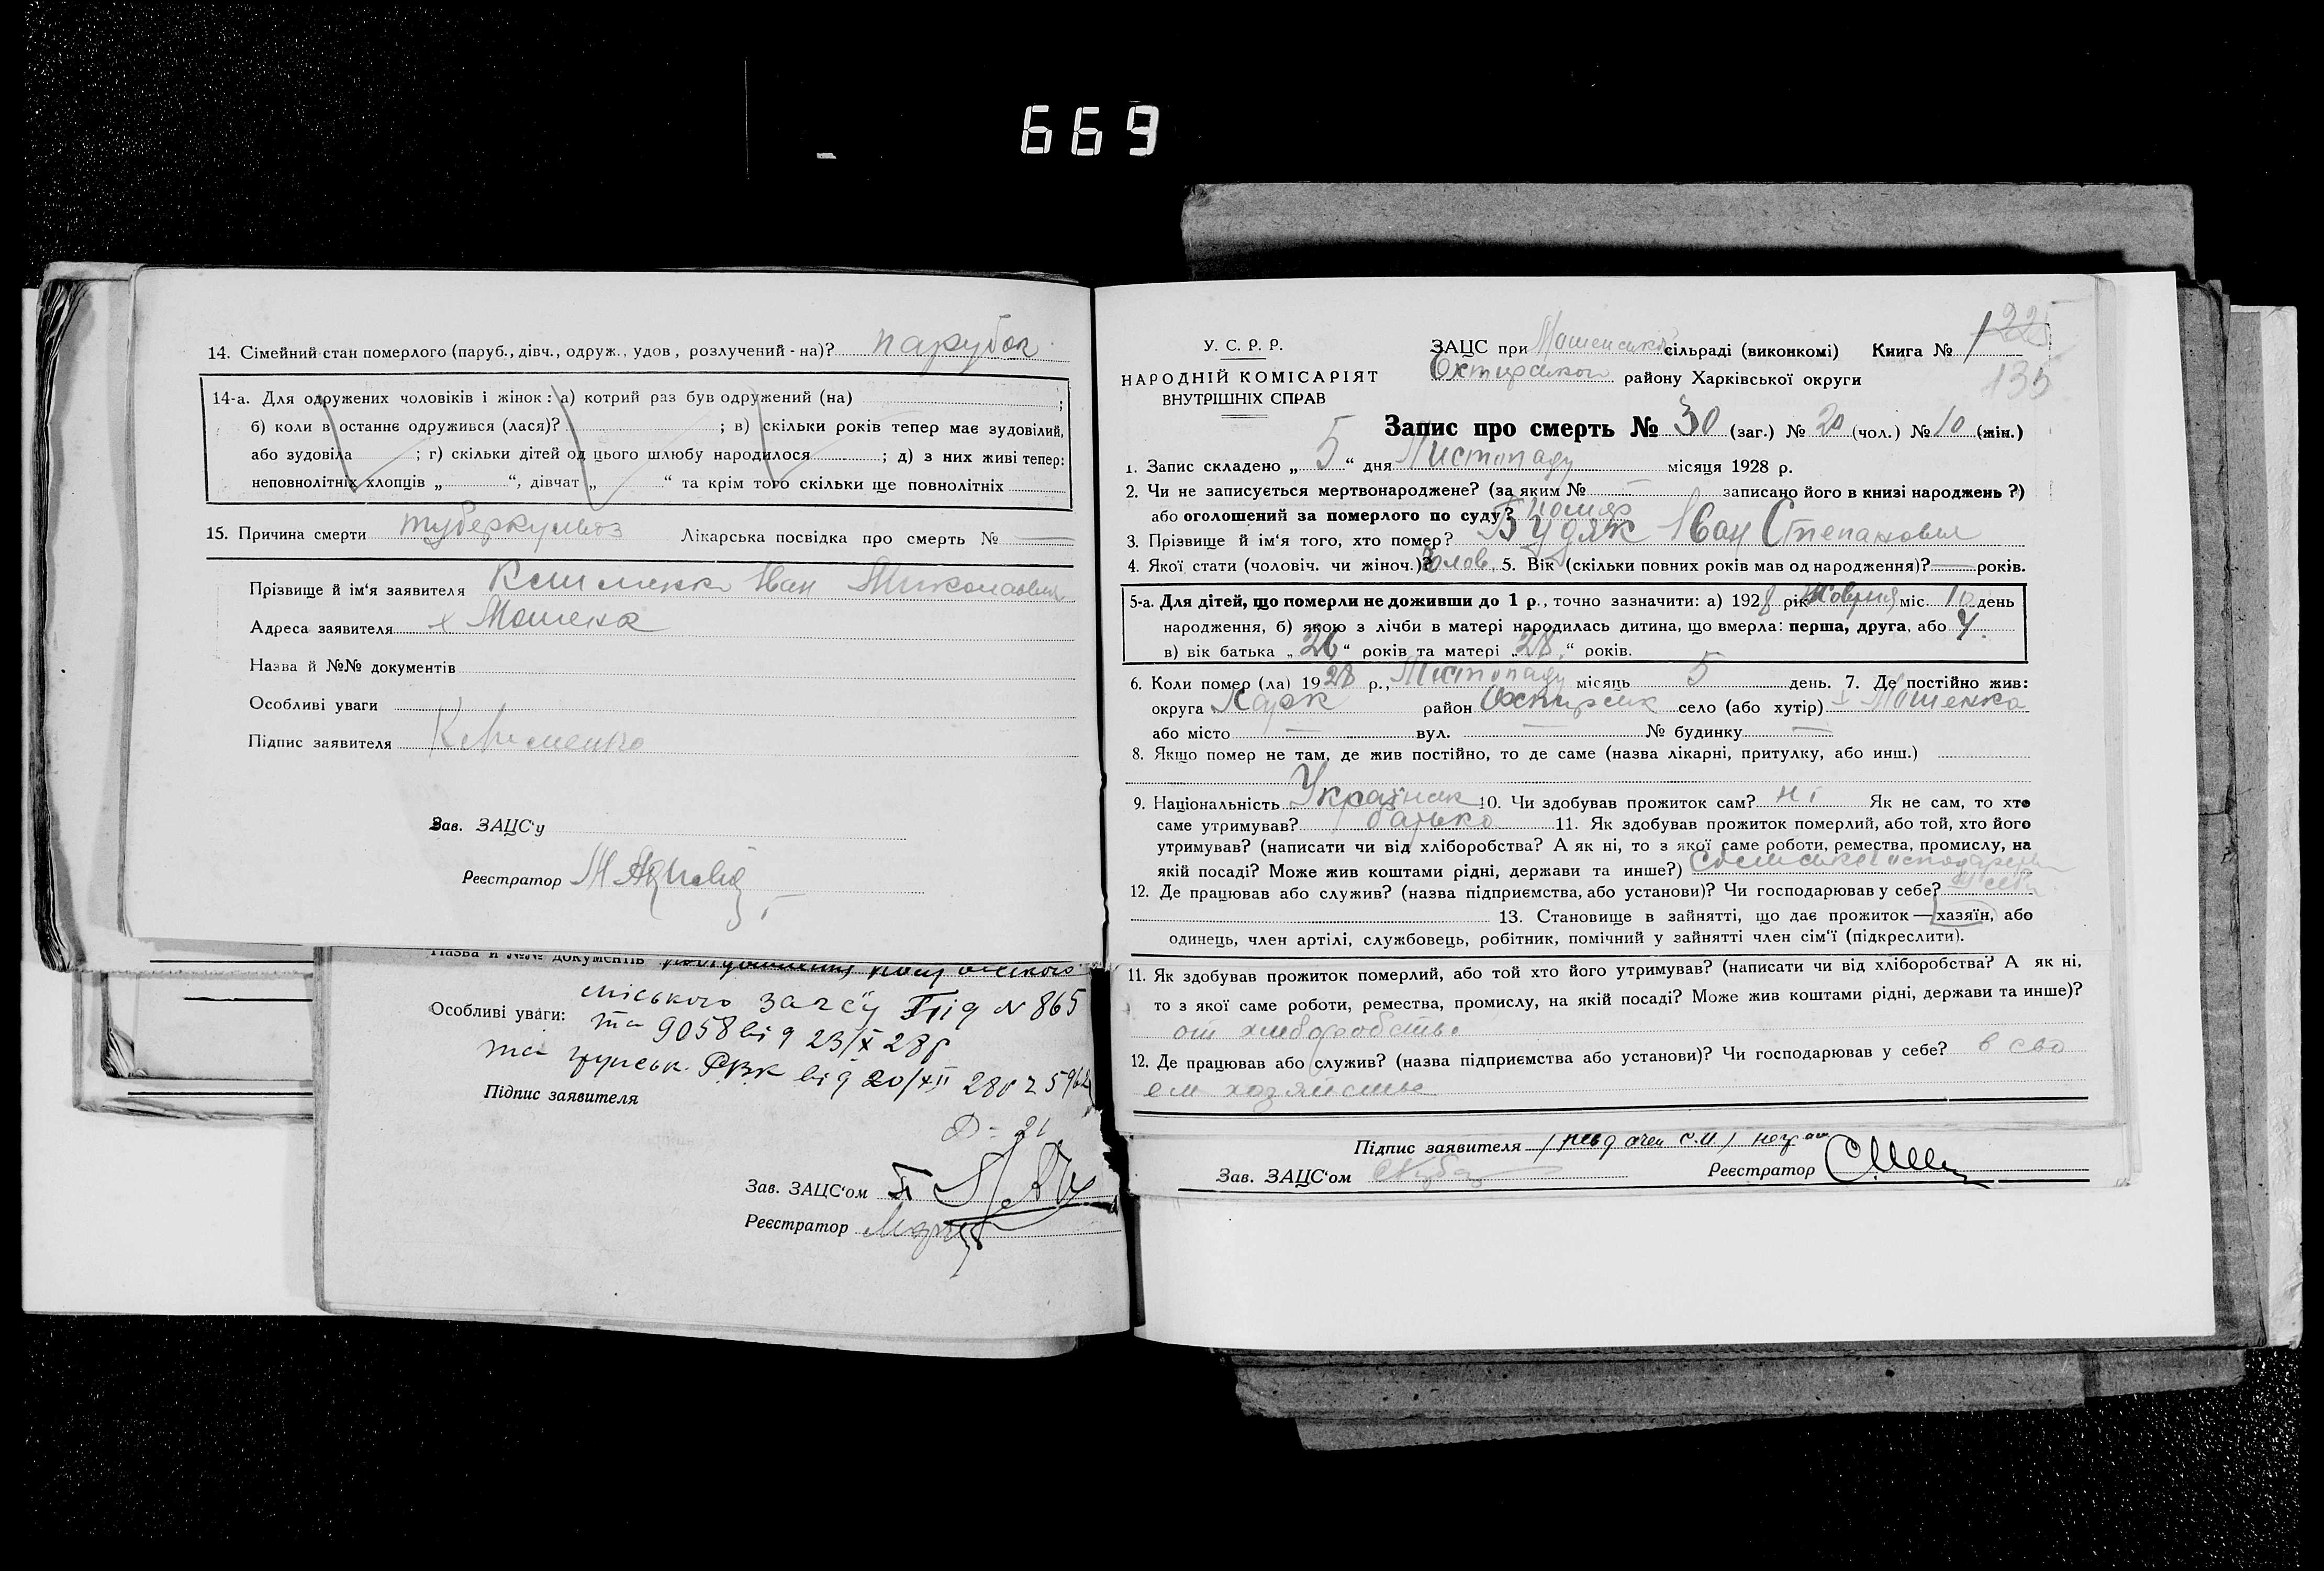 669
14. Сімейний стан померлого (паруб., дівч., одруж., удов, розлучений-на)? парубок
14-а. Для одружених чоловіків і жінок: а) котрий раз був одружений (на) ;
б) коли в останнє одружився (лася)? ; в) скільки років тепер має зудовілий,
або зудовіла ; г) скільки дітей од цього шлюбу народилося ; д) з них живі тепер:
неповнолітніх хлопців „ “, дівчат „ “ та крім того скільки ще повнолітніх
15. Причина смерти туберкульоз Лікарська посвідка про смерть № —
Прізвище й ім'я заявителя Іван
Адреса заявителя х Мошенка
Назва й №№ документів
Особливі уваги
Підпис заявителя Клименко
Зав. ЗАЦС'у
Реєстратор М
Назва й №№ документів
Особливі уваги: міського загсу від N 865
та 9058 від 23/X 28р
та РВК від 20/XII 28р
Підпис заявителя
Зав. ЗАЦС'ом
Реєстратор
У. С. Р. Р.
НАРОДНІЙ КОМІСАРІЯТ
ВНУТРІШНІХ СПРАВ
225
ЗАЦС при сільраді (виконкомі) Книга № 1
135
Охтирського району Харківської округи
Запис про смерть № 30 (заг.) № 20 (чол.) № 10 (жін.)
1. Запис складено „ 5 “ дня Листопаду місяця 1928 р.
2. Чи не записується мертвонароджене? (за яким № — записано його в книзі народжень?)
або оголошений за померлого по суду? помер
3. Прізвище й ім'я того, хто помер? Будяк Іван Степанович
4. Якої стати (чоловіч. чи жіноч.)? Чолов. 5. Вік (скільки повних років мав од народження)? — років.
5-а. Для дітей, що померли не доживши до 1 р., точно зазначити: а) 1928 рік Жовтня міс. 10 день
народження, б) якою з лічби в матері народилась дитина, що вмерла: перша, друга, або
в) вік батька „ “ років та матері „ 28 “ років.
6. Коли помер (ла) 1928 р., Листопаду місяць 5 день. 7. Де постійно жив:
округа Харк район Охтирськ село (або хутір) х Мошенка
або місто — вул. — № будинку —
8. Якщо помер не там, де жив постійно, то де саме (назва лікарні, притулку, або инш.)
9. Національність Українец 10. Чи здобував прожиток сам? ні Як не сам, то хто
саме утримував? батько 11. Як здобував прожиток померлий, або той, хто його
утримував? (написати чи від хліборобства? А як ні, то з якої саме роботи, ремества, промислу, на
якій посаді? Може жив коштами рідні, держави та инше?)
12. Де працював або служив? (назва підприємства, або установи)? Чи господарював у себе?
13. Становище в зайнятті, що дає прожиток — хазяїн, або
одинець, член артілі, службовець, робітник, помічний у зайнятті член сім'ї (підкреслити).
11. Як здобував прожиток померлий, або той хто його утримував? (написати чи від хліборобства? А як ні,
то з якої саме роботи, ремества, промислу, на якій посаді? Може жив коштами рідні, держави та инше)?
от хлиборобства
12. Де працював або служив? (назва підприємства або установи)? Чи господарював у себе? в сво
ем хозяйстве
Підпис заявителя
Зав. ЗАЦС'ом Реєстратор